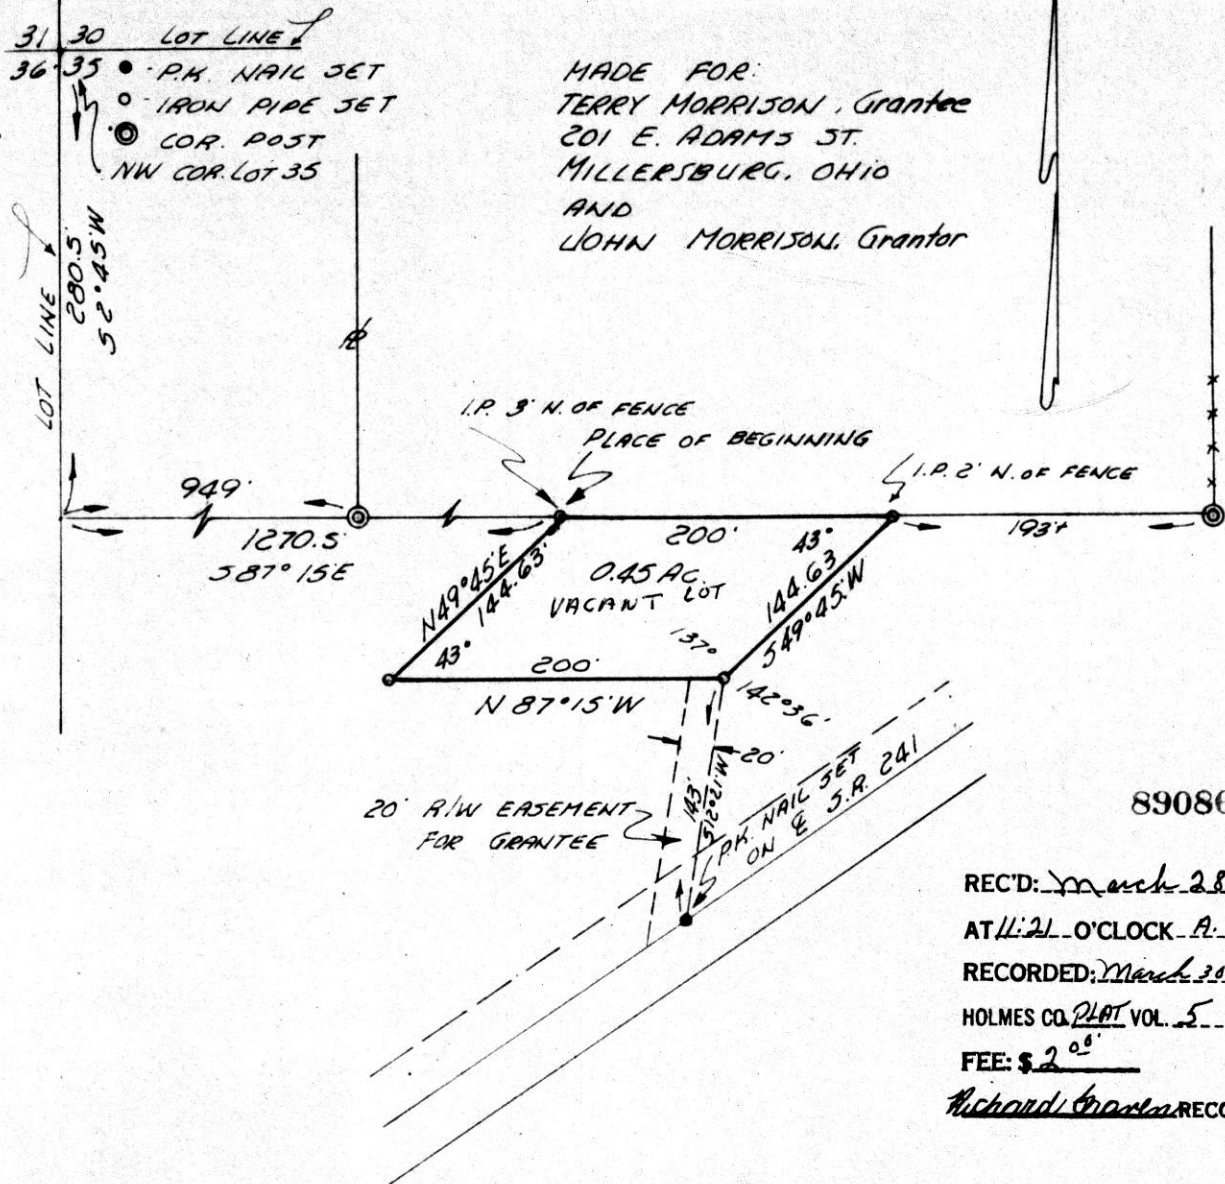 31 30 LOT LINE
36 35 P.K. NAIL SET
IRON PIPE SET
COR. POST
NW COR. LOT 35
MADE FOR:
TERRY MORRISON, Grantee
201 E. ADAMS ST.
MILLERSBURG, OHIO
AND
JOHN MORRISON, Grantor
LOT LINE
280.5'
S 2°45'W
I.P. 3' N. OF FENCE
PLACE OF BEGINNING
I.P. 2' N. OF FENCE
949'
1270.5'
S 87°15'E
200'
193±
43°
N49°45'E
144.63'
0.45 AC.
VACANT LOT
144.63
S 49°45'W
137°
43°
200'
N 87°15'W
142°36'
20'
143'
S12°21'W
20' R/W EASEMENT
FOR GRANTEE
P.K. NAIL SET
ON ℄ S.R. 241
8908
REC'D: March 28
AT 11:21 O'CLOCK A.
RECORDED: March 30
HOLMES CO. PLAT VOL. 5
FEE: $ 2.00
Richard Graven RECO